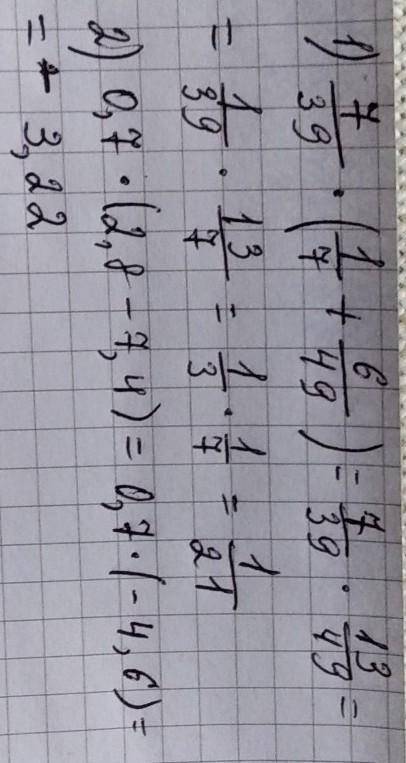 1) 7/39 · (1/7 + 6/49) = 7/39 · 13/49 =
= 1/39 · 13/7 = 1/3 · 1/7 = 1/21
2) 0,7 · (2,8 - 7,4) = 0,7 · (-4,6) =
= - 3,22